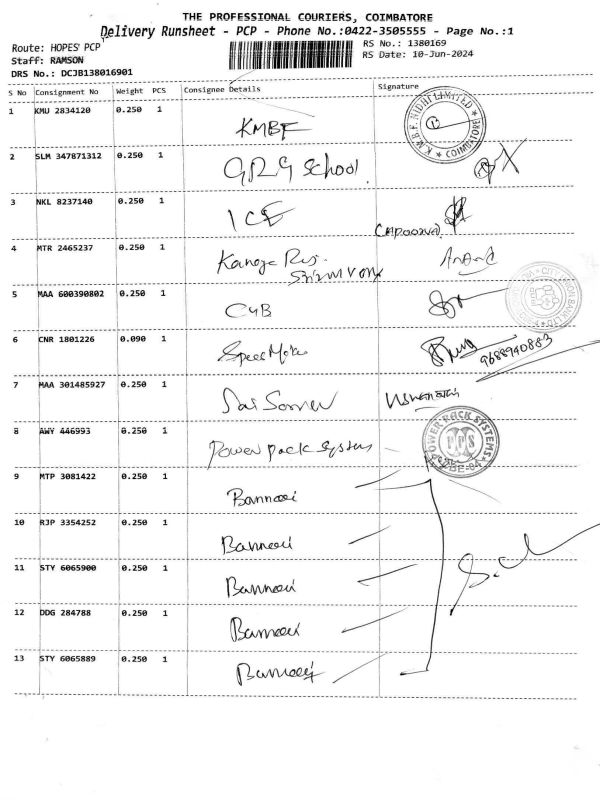 THE PROFESSIONAL COURIERS, COIMBATORE
Delivery Runsheet - PCP - Phone No.:0422-3505555 - Page No.:1
Route: HOPES' PCP
RS No.: 1380169
Staff: RAMSON
RS Date: 10-Jun-2024
DRS No.: DCJB138016901
S No Consignment No Weight PCS Consignee Details Signature
1 KMU 2834120 0.250 1 KMBF
K.M.B.F. NIDHI LIMITED COIMBATORE
2 SLM 347871312 0.250 1 GRG School
3 NKL 8237140 0.250 1 ICE
4 MTR 2465237 0.250 1
5 MAA 600390802 0.250 1 CUB
CITY UNION BANK LTD
6 CNR 1801226 0.090 1
9688940883
7 MAA 301485927 0.250 1 Sai
8 AWY 446993 0.250 1 Power pack System
POWER PACK SYSTEMS PPS CBE-84
9 MTP 3081422 0.250 1 Bannari
10 RJP 3354252 0.250 1 Bannari
11 STY 6065900 0.250 1 Bannari
12 DDG 284788 0.250 1 Bannari
13 STY 6065889 0.250 1 Bannari